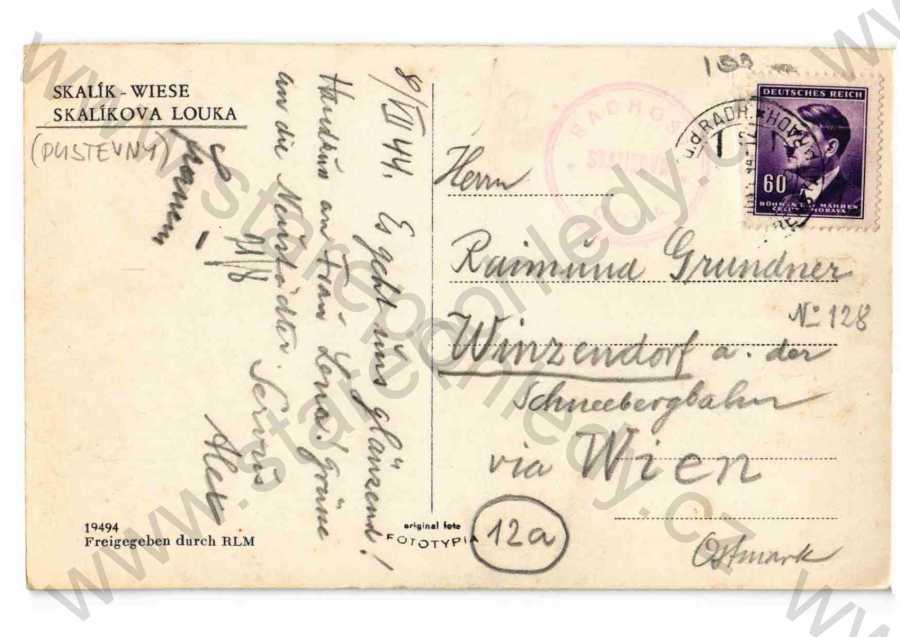 SKALÍK - WIESE
SKALÍKOVA LOUKA
(PUSTEVNY)
8/VII 44. Es geht uns glänzend!
Handkuß an Frau Lena! Grüße
an die Neustädter. Servus
Alex
11/8
19494
Freigegeben durch RLM
original foto
FOTOTYPIA
RADHOŠ
DEUTSCHES REICH
60
BÖHMEN U. MÄHREN
ČECHY A MORAVA
u.d.RADH.
Herrn
Raimund Grundner
No 128
Winzendorf a. der
Schneebergbahn
via Wien
12a
Ostmark
www.stareprohledy.cz